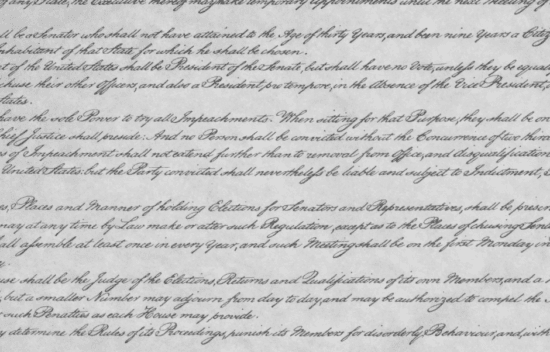 of any State, the Executive thereof may make temporary Appointments until the next Meeting of
ll be a Senator who shall not have attained to the Age of thirty Years, and been nine Years a Citiz
Inhabitant of that State for which he shall be chosen.
t of the United States shall be President of the Senate, but shall have no Vote, unless they be equall
chuse their other Officers, and also a President pro tempore, in the Absence of the Vice President,
States.
have the sole Power to try all Impeachments. When sitting for that Purpose, they shall be on
Chief Justice shall preside: And no Person shall be convicted without the Concurrence of two thir
s of Impeachment shall not extend further than to removal from Office, and disqualification
United States: but the Party convicted shall nevertheless be liable and subject to Indictment,
es, Places and Manner of holding Elections for Senators and Representatives, shall be prescr
may at any time by Law make or alter such Regulation, except as to the Places of chusing Sena
all assemble at least once in every Year, and such Meeting shall be on the first Monday in
use shall be the Judge of the Elections, Returns and Qualifications of its own Members, and a
but a smaller Number may adjourn from day to day, and may be authorized to compel the
such Penalties as each House may provide.
y determine the Rules of its Proceedings, punish its Members for disorderly Behaviour, and, with